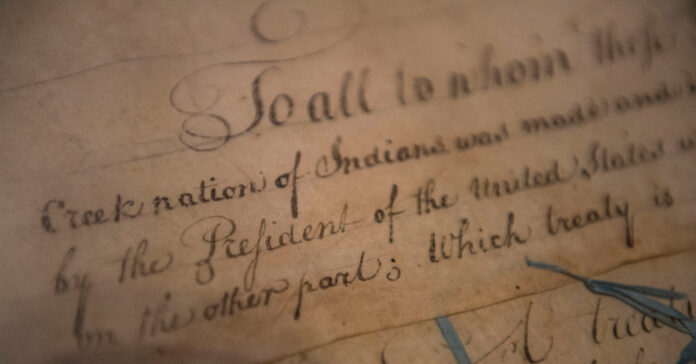 To all to whom these
Creek nation of Indians was made and
by the President of the United States
on the other part; Which treaty is
A treaty